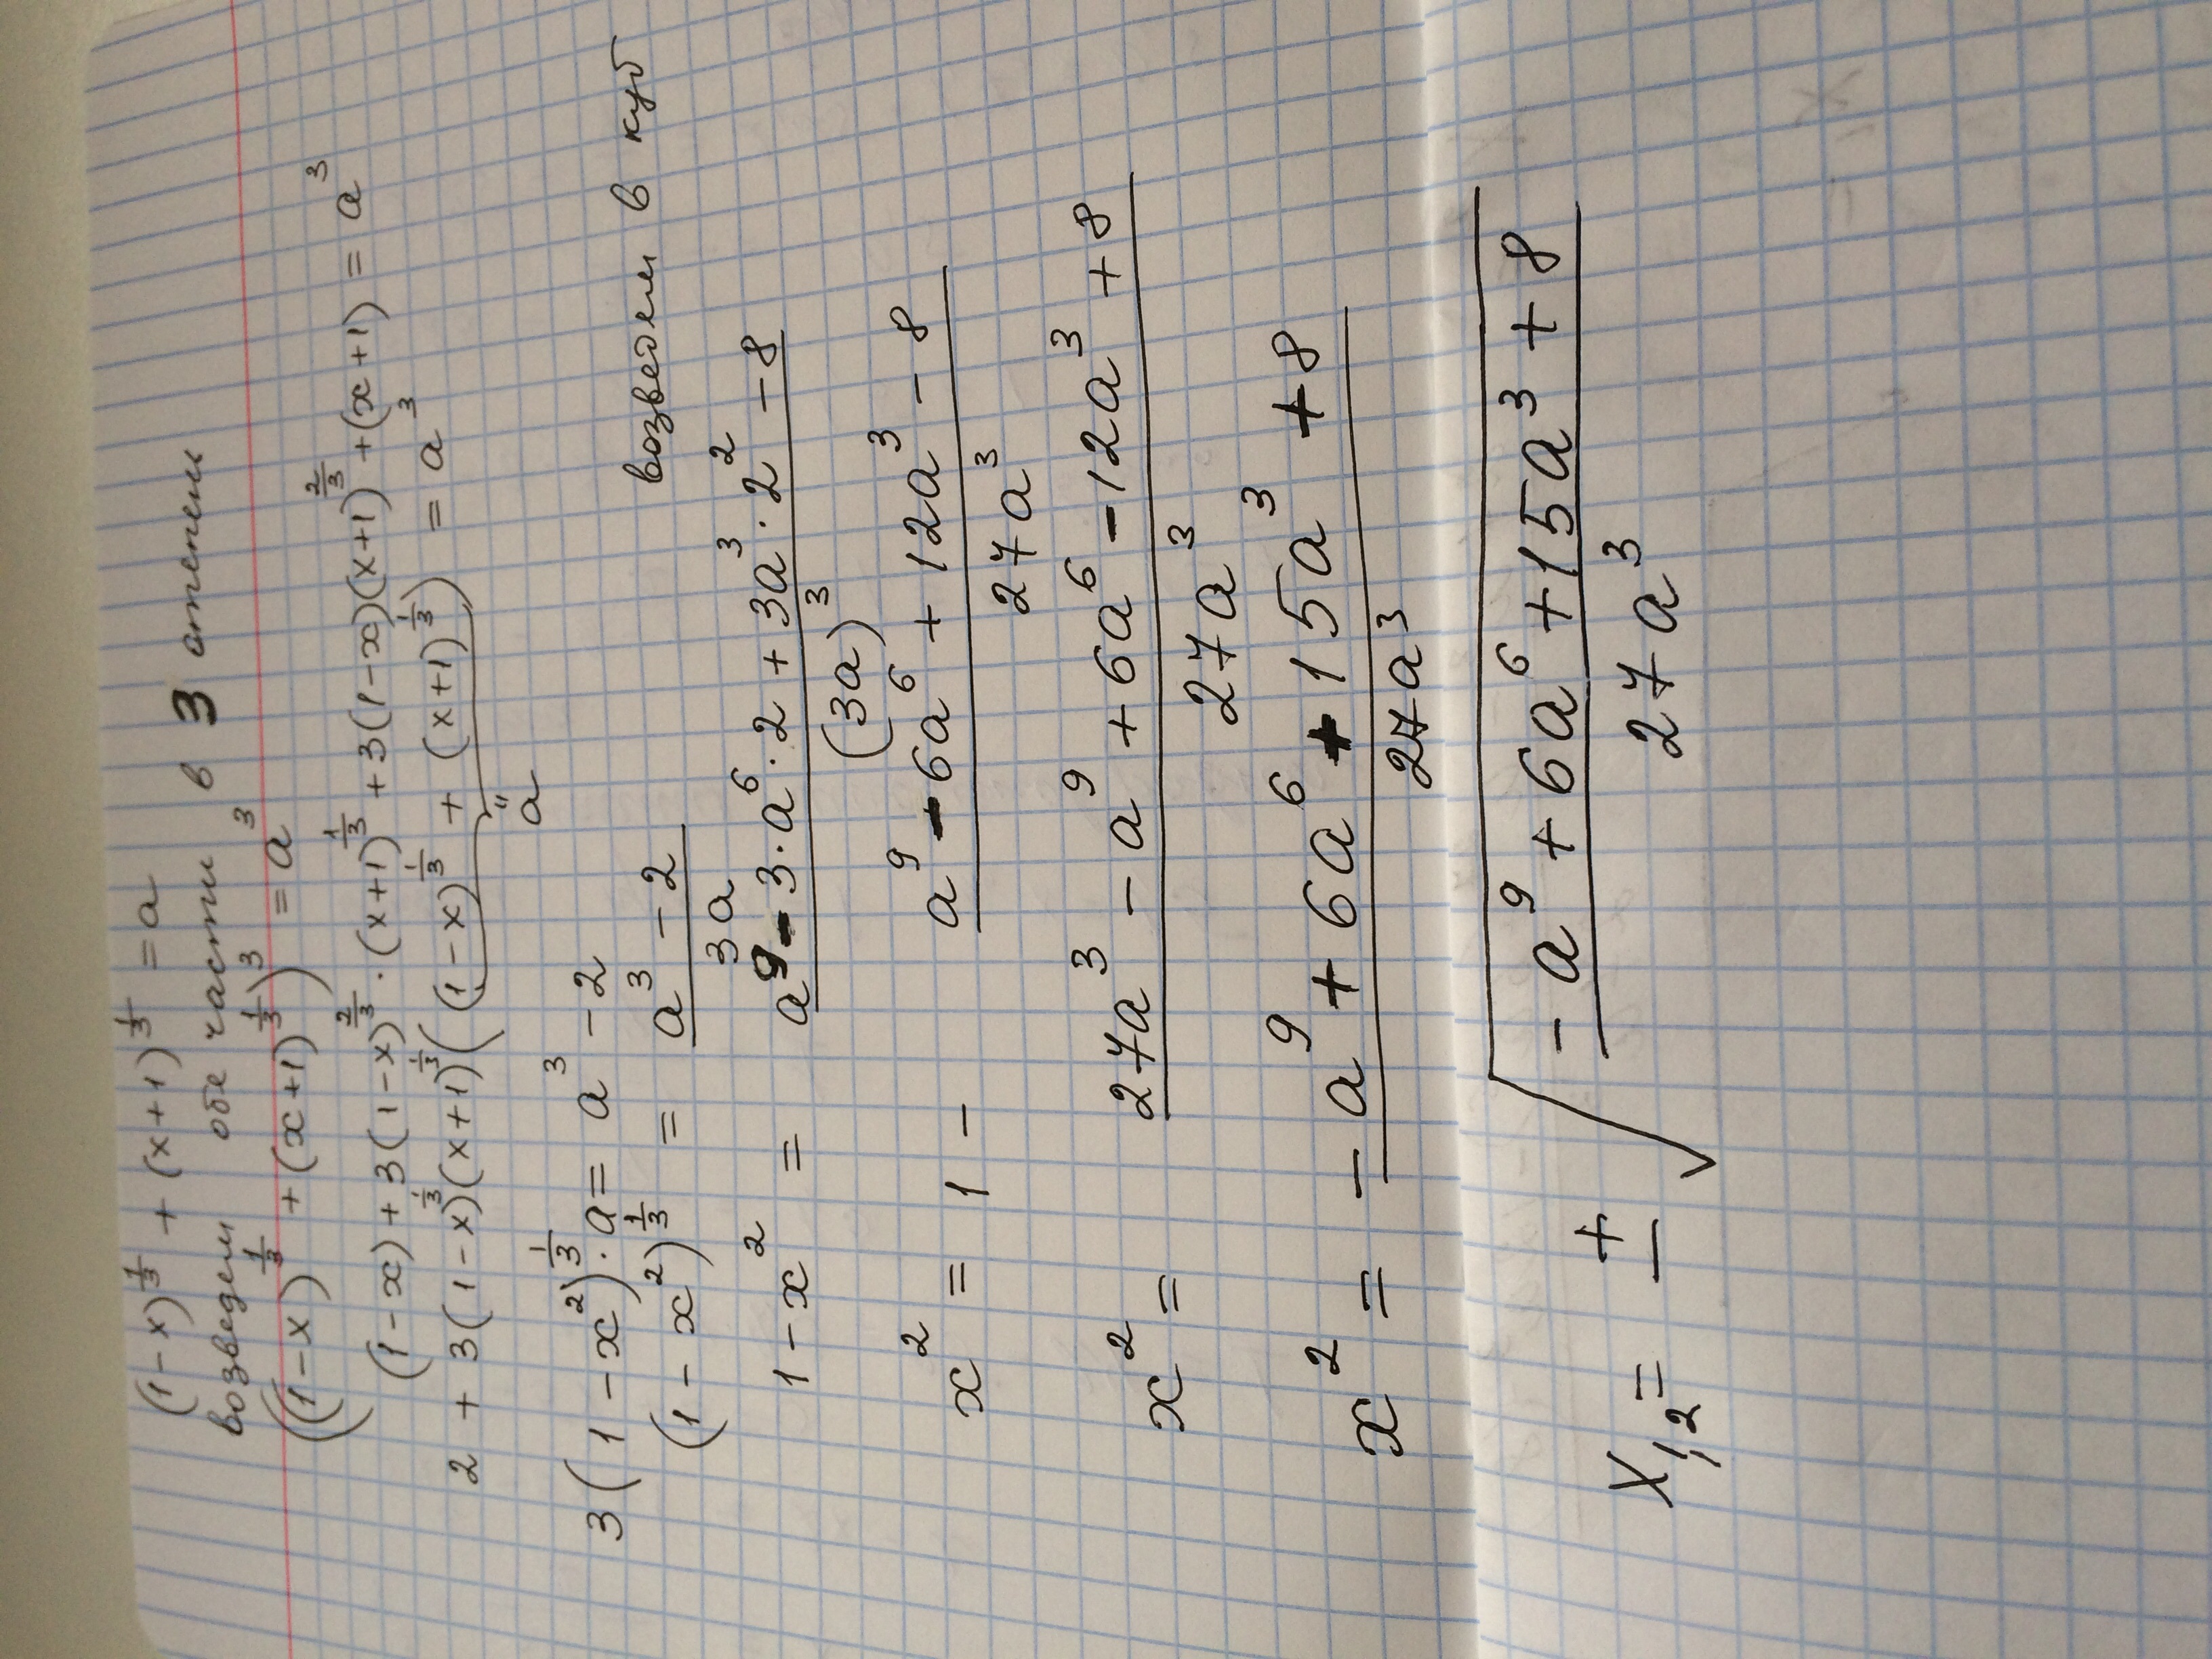 (1-x)^{1/3} + (x+1)^{1/3} = a
возведем обе части в 3 степень
((1-x)^{1/3} + (x+1)^{1/3})^3 = a^3
(1-x) + 3(1-x)^{2/3} · (x+1)^{1/3} + 3(1-x)(x+1)^{2/3} + (x+1) = a^3
2 + 3(1-x)^{1/3}(x+1)^{1/3}((1-x)^{1/3} + (x+1)^{1/3}) = a^3
" a
3(1-x^2)^{1/3} · a = a^3 - 2
(1-x^2)^{1/3} = \frac{a^3-2}{3a} возведем в куб
1-x^2 = \frac{a^9 - 3·a^6·2 + 3a^3·2^2 - 8}{(3a)^3}
x^2 = 1 - \frac{a^9 - 6a^6 + 12a^3 - 8}{27a^3}
x^2 = \frac{27a^3 - a^9 + 6a^6 - 12a^3 + 8}{27a^3}
x^2 = \frac{-a^9 + 6a^6 + 15a^3 + 8}{27a^3}
x_{1,2} = ± \sqrt{\frac{-a^9 + 6a^6 + 15a^3 + 8}{27a^3}}